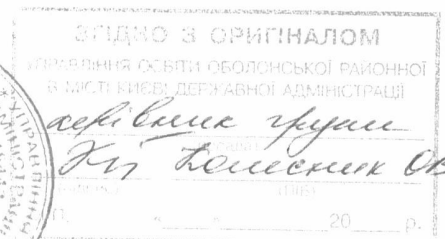 ЗГІДНО З ОРИГІНАЛОМ
УПРАВЛІННЯ ОСВІТИ ОБОЛОНСЬКОЇ РАЙОННОЇ
В МІСТІ КИЄВІ ДЕРЖАВНОЇ АДМІНІСТРАЦІЇ
керівник групи
(посада)
Колесник
(підпис) (ПІБ)
" " 20 р.
УПРАВЛІННЯ